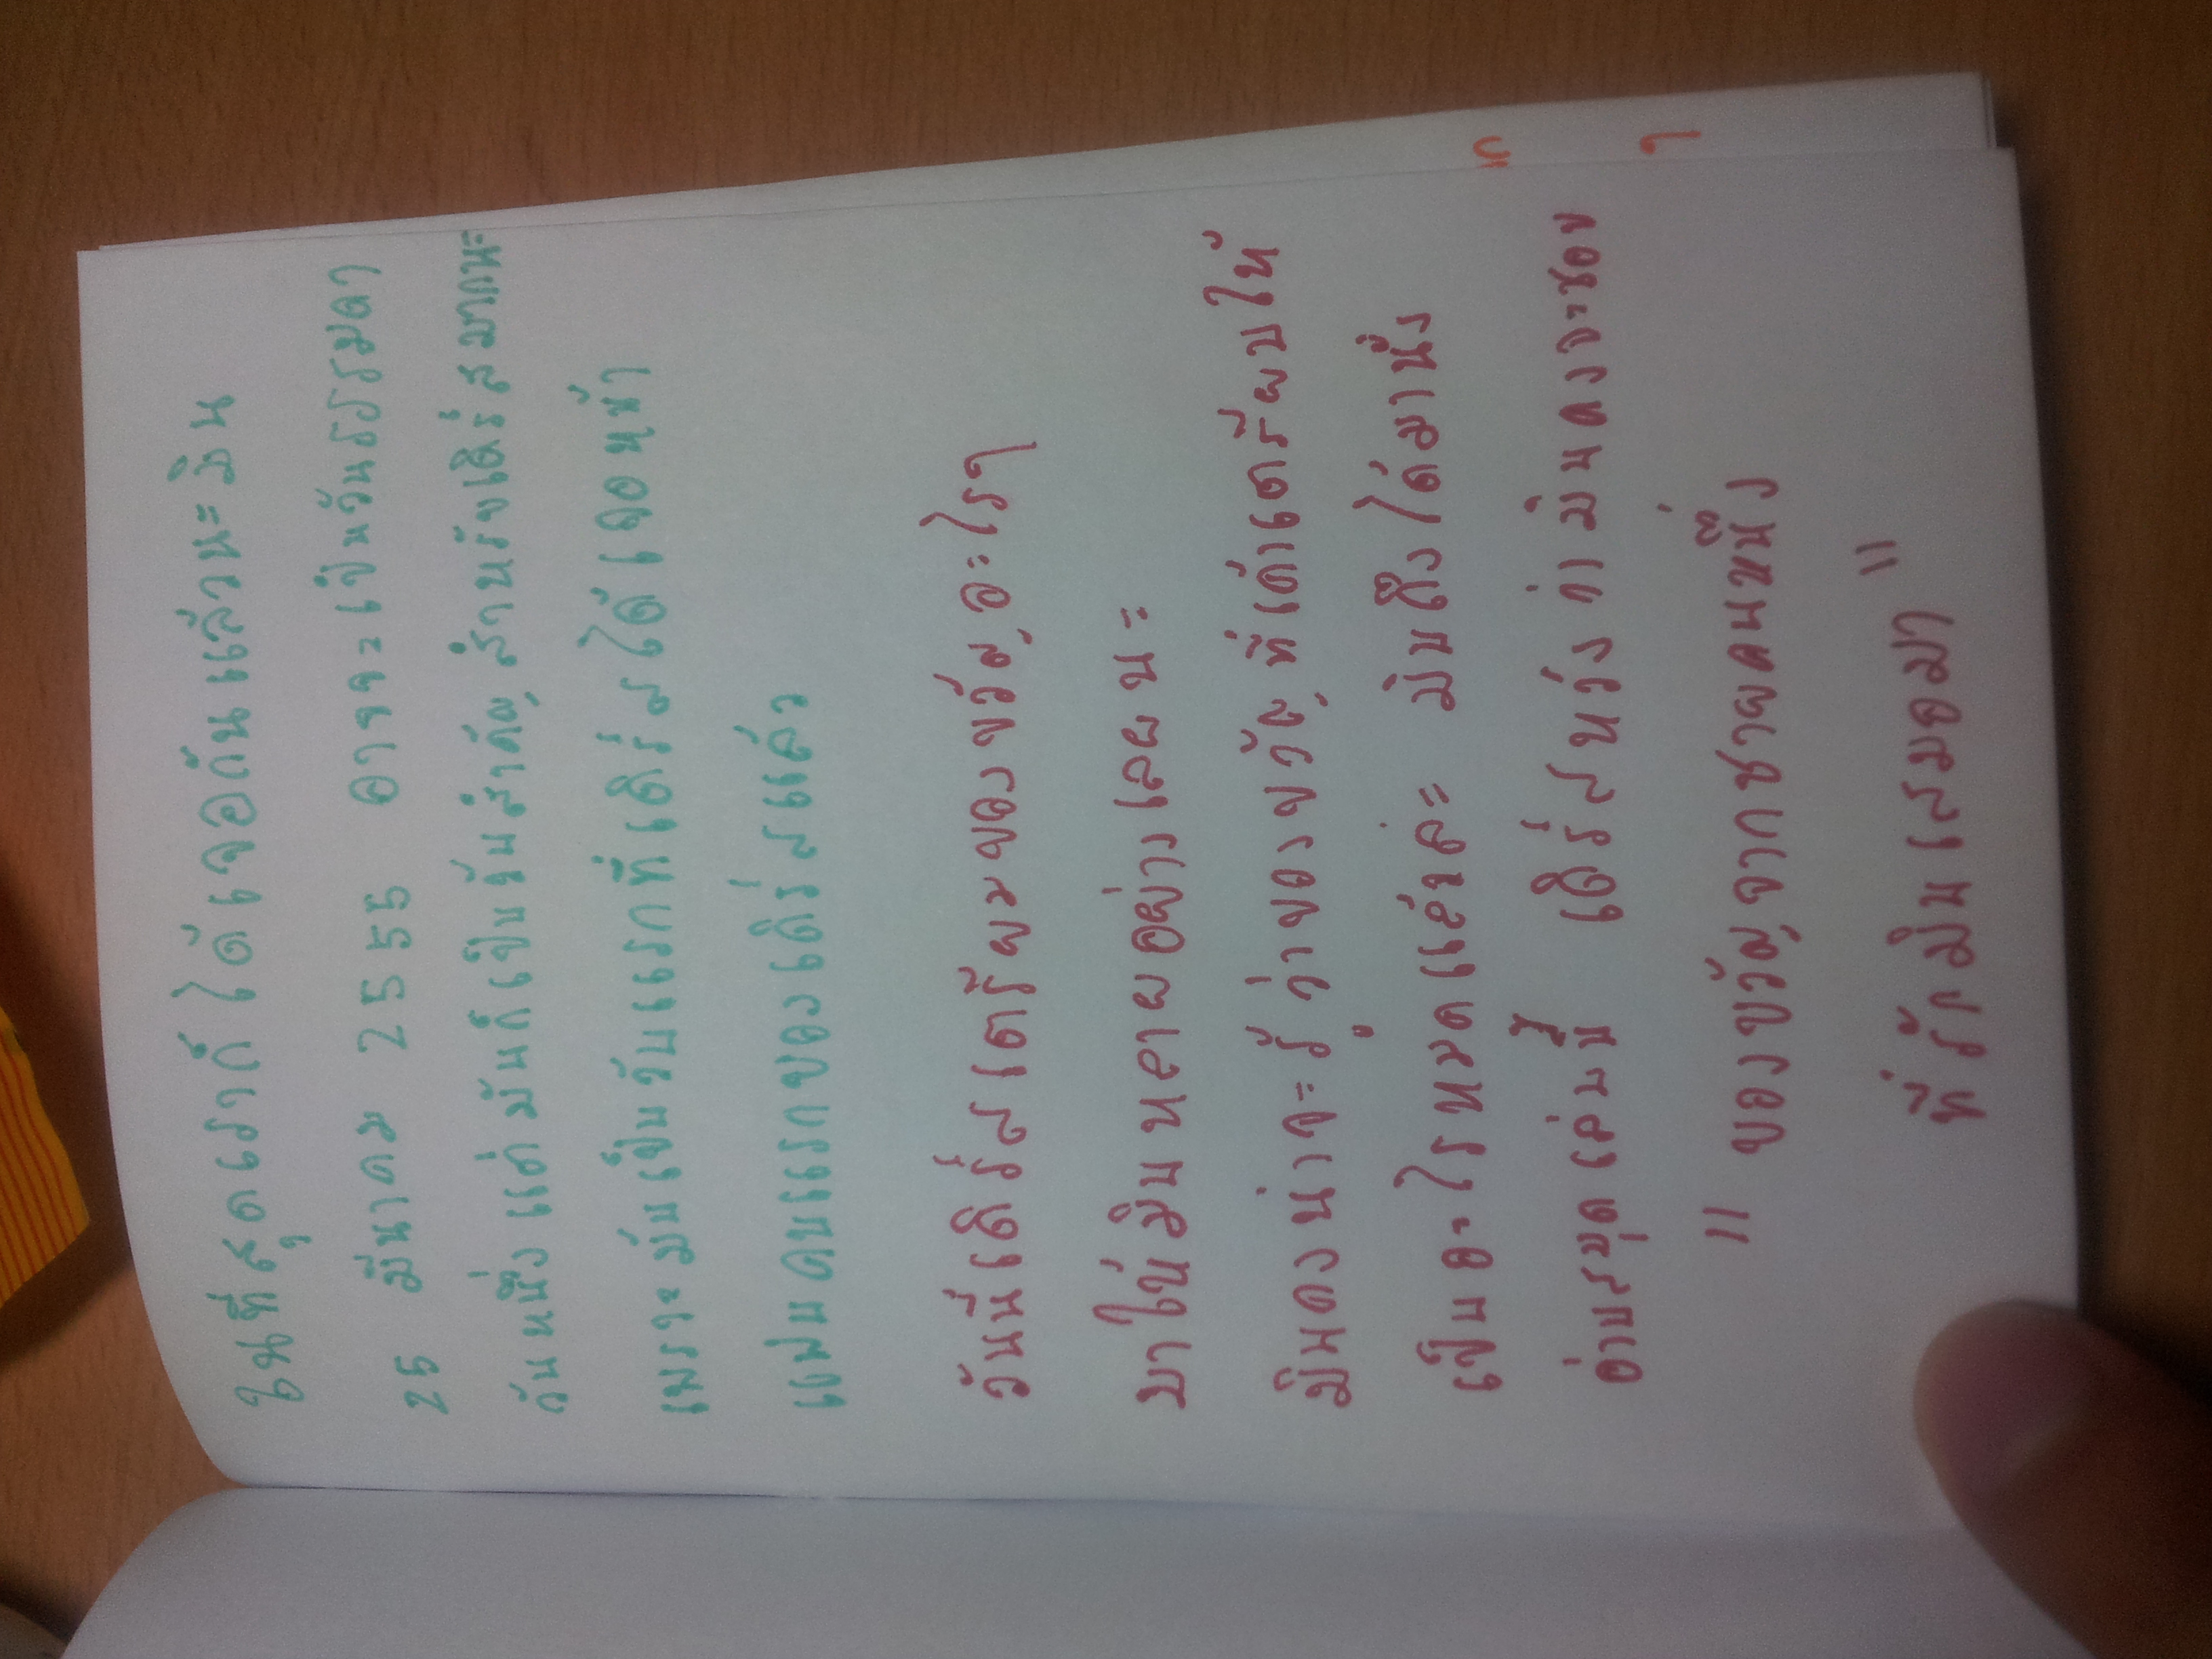 ในที่สุดเราก็ได้เจอกันแล้วนะมิน
25 มีนาคม 2555 อาจจะเป็นวันธรรมดา
วันหนึ่ง แต่มันก็เป็นวันสำคัญสำหรับเดียร์สมากนะ
เพราะมันเป็นวันแรกที่เดียร์สได้เจอหน้า
แฟนคนแรกของเดียร์สแล้ว
วันนี้เดียร์สเตรียมของขวัญอะไรๆ
มาให้มินหลายอย่างเลยนะ
มินคงน่าจะรู้ว่าของขวัญที่เค้าเตรียมให้
เป็นอะไรหมดแล้วล่ะ มินถึงได้มานั่ง
อ่านสมุดเล่มนี้ เดียร์สหวังว่ามินคงจะชอบ
" ของขวัญจากชายคนหนึ่ง
ที่รักมินเสมอมา "